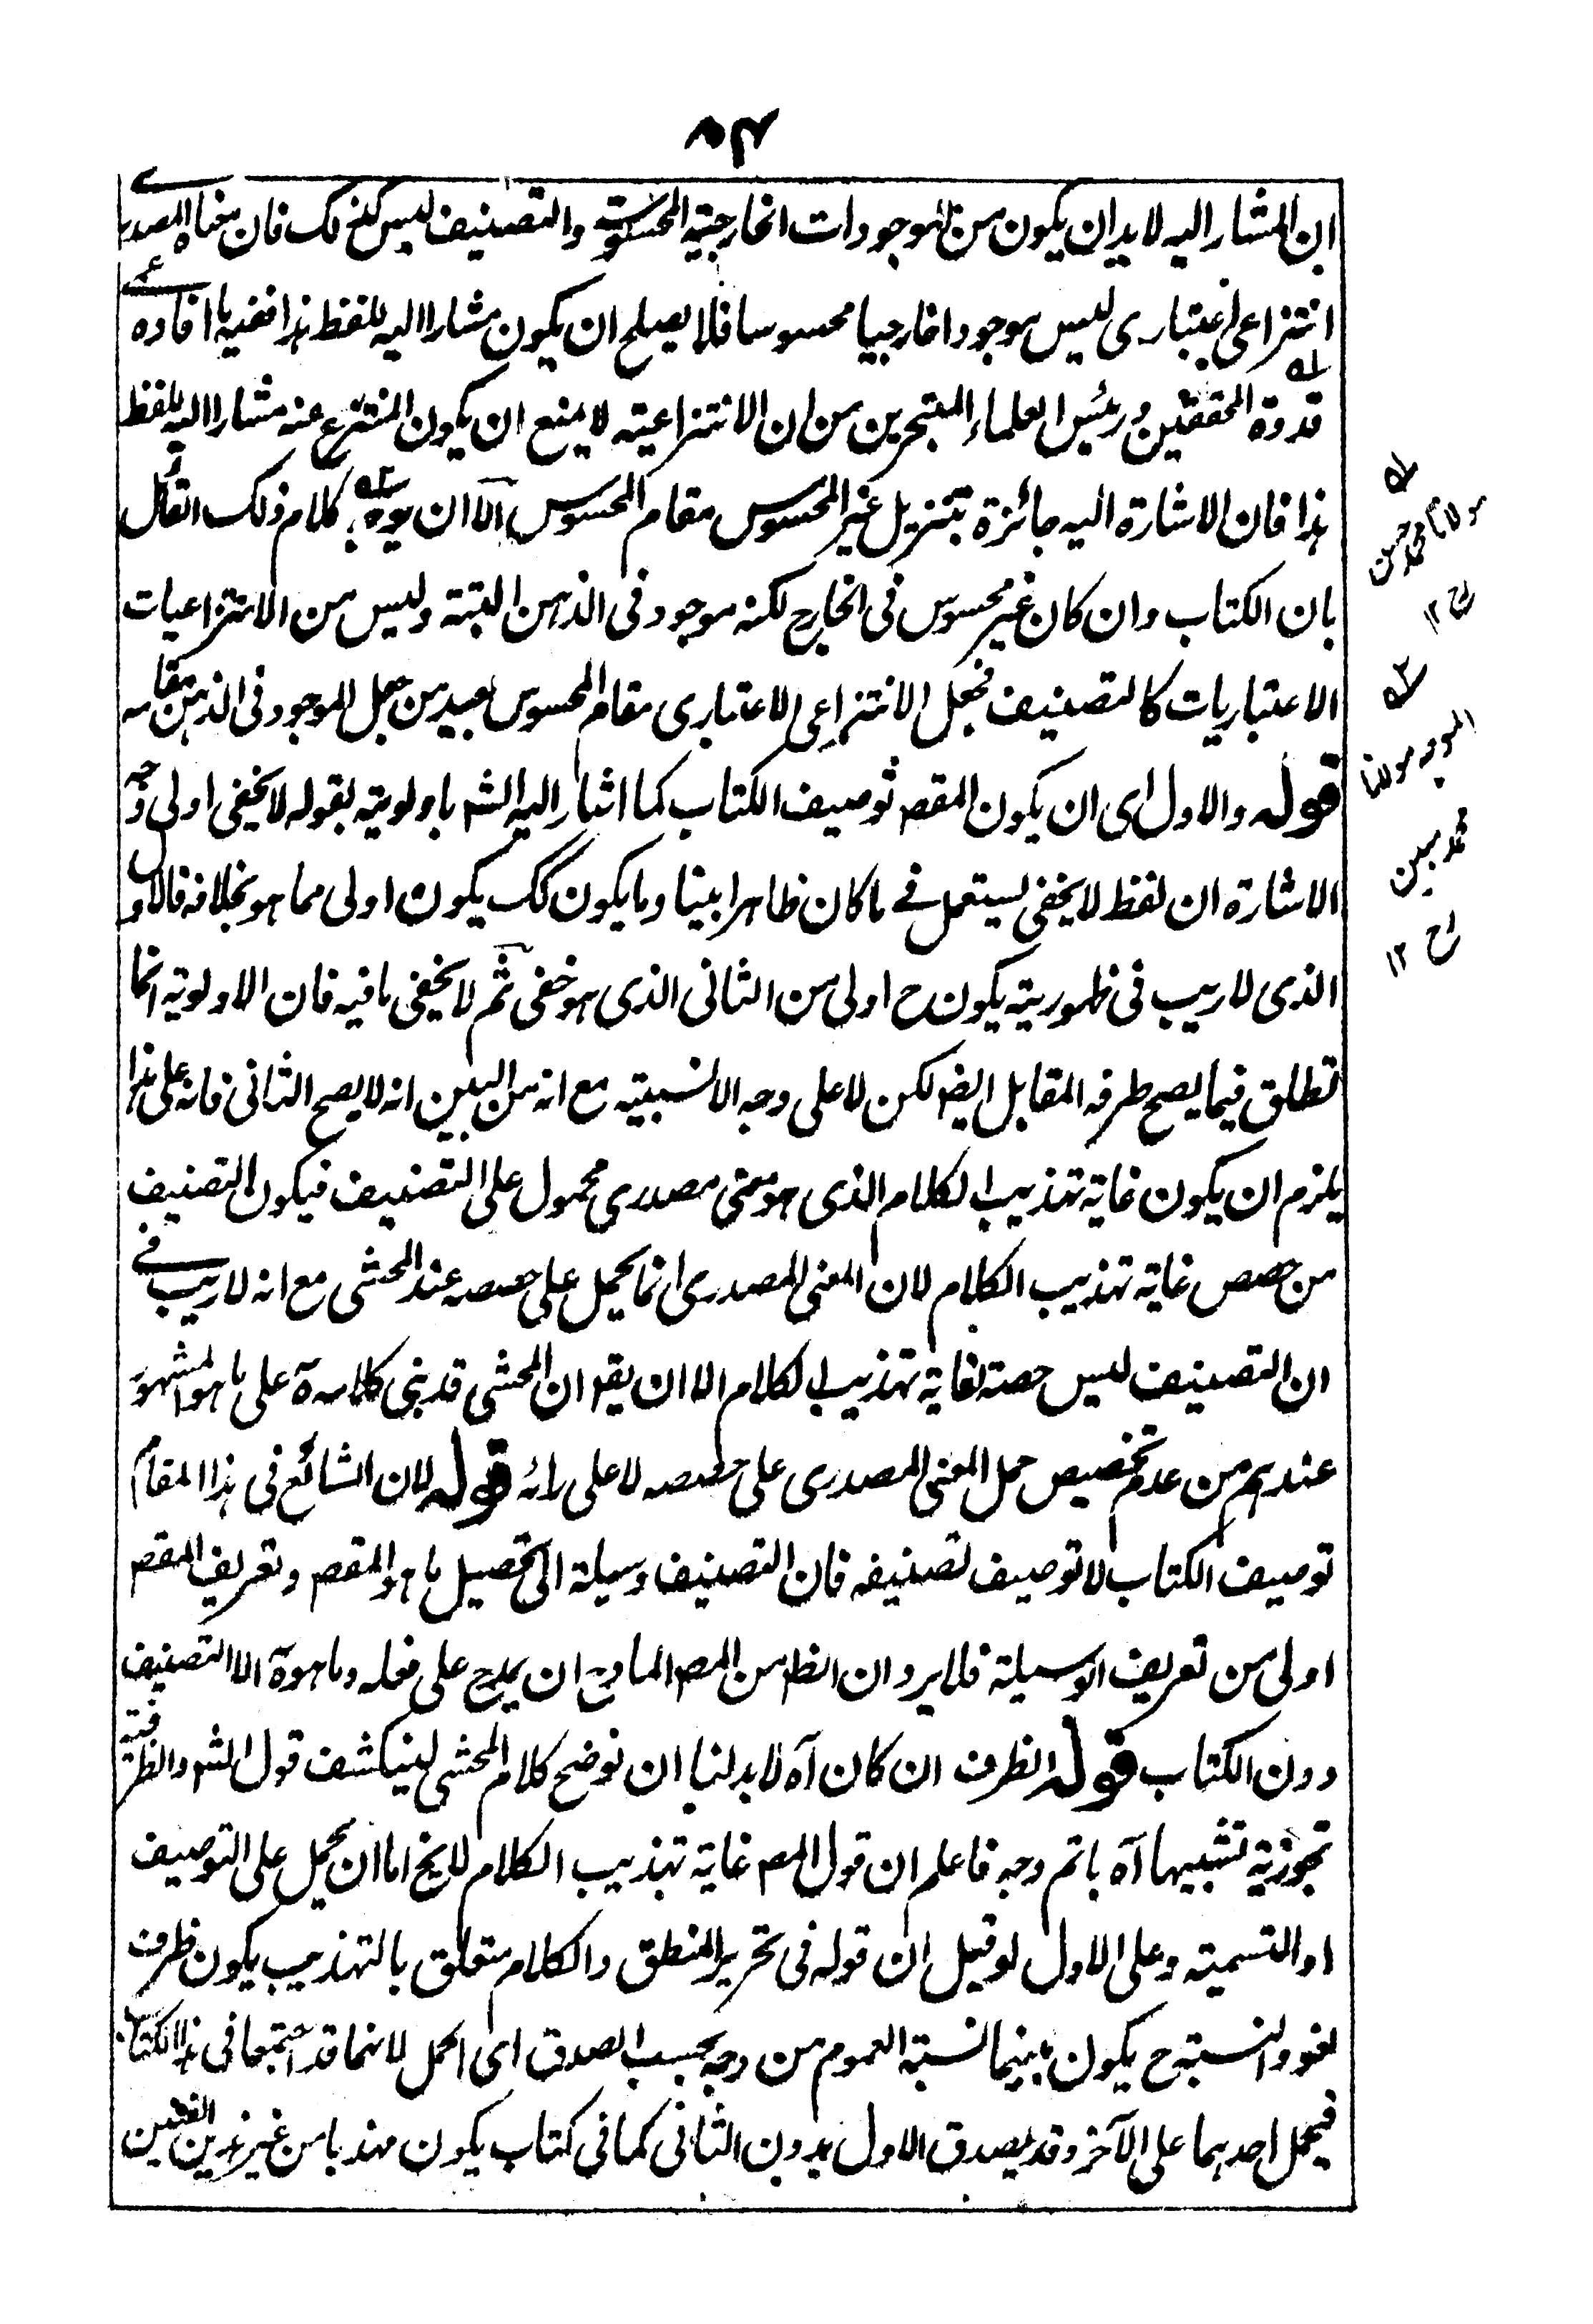 ان المشار اليه لا بد ان يكون من الموجودات الخارجية المحسوسة والتصنيف ليس كذلك فان معناه المصدرے
انتزاعى اعتبارى ليس موجودا خارجيا محسوسا فلا يصلح ان يكون مشارا اليه للفظ هذا ففيه ما افاده
قدوة المحققين ورئيس العلماء المتبحرين من ان الانتزاعية لا يمنع ان يكون المنتزع عنه مشارا اليه للفظ
هذا فان الاشارة اليه جائزة بتنزيل غير المحسوس مقام المحسوس الا ان يوجه كلام ذلك القائل
بان الكتاب وان كان غير محسوس فى الخارج لكنه موجود فى الذهن البتة وليس من الانتزاعيات
الاعتباريات كالتصنيف فجعل الانتزاعى الاعتبارى مقام المحسوس بعيد من جعل الموجود فى الذهن مقامه
قوله والاول اى ان يكون المقصـ توصيف الكتاب كما اشار اليه الشـ باولويته بقوله لا يخفى اولى وجه
الاشارة ان لفظ لا يخفى يستعمل فے ما كان ظاهرا بينا وما يكون كك يكون اولى مما هو بخلافه فالاول
الذى لا ريب فى ظهوريته يكون ح اولى من الثانى الذى هو خفى ثم لا يخفى ما فيه فان الاولوية انما
تطلق فيما يصح طرفه المقابل ايضـ لكن لا على وجه الانسبية مع انه من البين انه لا يصح الثانى فانه على هذا
يلزم ان يكون غاية تهذيب الكلام الذى هو معنى مصدرى محمول على التصنيف فيكون التصنيف
من حصص غاية تهذيب الكلام لان المعنى المصدرى انما يحمل على حصصه عند المحشى مع انه لا ريب فے
ان التصنيف ليس حصة لغاية تهذيب الكلام الا ان يقو ان المحشى قد بنى كلامه ة على ما هو المشهور
عندهم من عدم تخصيص حمل المعنى المصدرى على حصصه لا على رائه قوله لان الشائع فى هذا المقام
توصيف الكتاب لا توصيف تصنيفه فان التصنيف وسيلة الى تحصيل ما هو المقصـ وتعريف المقصـ
اولى من تعريف الوسيلة فلا يرد ان الظـ من المصـ المادح ان يمدح على فعله وما هوة الا التصنيف
دون الكتاب قوله الظرف ان كان آه لا بد لنا ان نوضح كلام المحشى لينكشف قول الشـ والظرفية
تجوزية تشبيها آه باتم وجه فاعلم ان قول المصـ غاية تهذيب الكلام لا يخ اما ان يحمل على التوصيف
او التسمية وعلى الاول لو قيل ان قوله فى تحرير المنطق والكلام متعلق بالتهذيب يكون ظرف
لغو والنسبة ح يكون بينهما نسبة العموم من وجه بحسب الصدق اى الحمل لانهما قد اجتمعا فى هذا الكتاب
فيحمل احدهما على الآخر وقد يصدق الاول بدون الثانى كما فى كتاب يكون مهذبا من غير هذين الفنين
مولانا محمد حسن
رح ١٢
الموجه مولانا
محمد مبين
رح ١٢